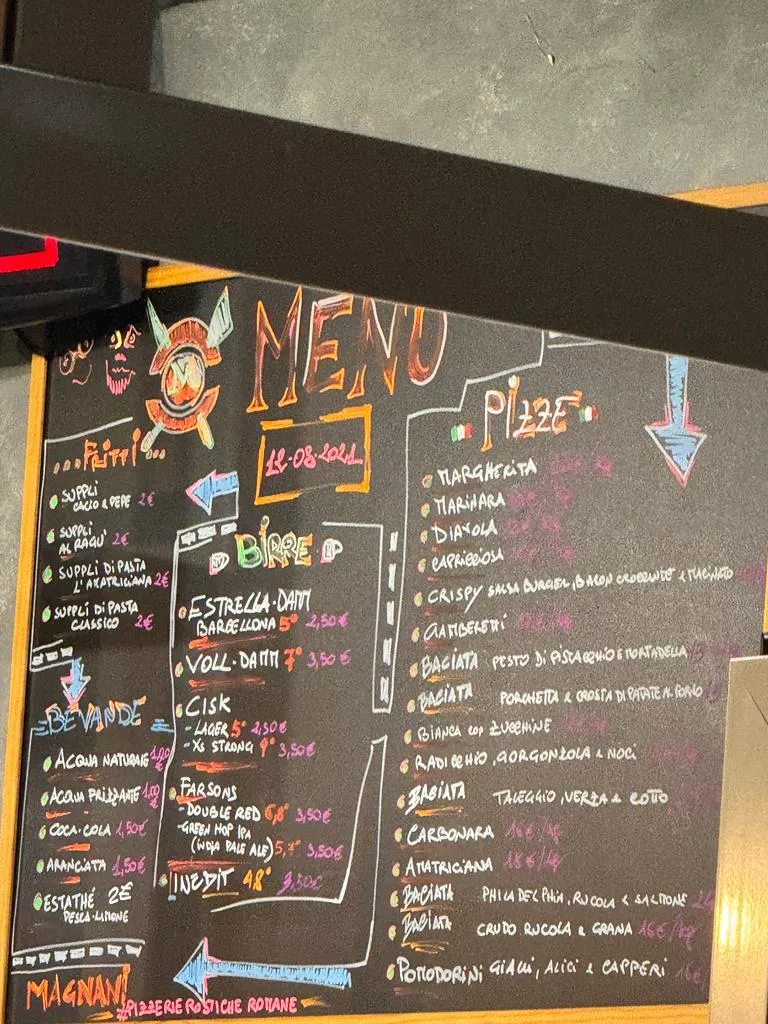 MENU
12-08-2021
FRITTI
SUPPLÌ
CACIO & PEPE 2€
SUPPLÌ
AL RAGÙ 2€
SUPPLÌ DI PASTA
L'AMATRICIANA 2€
SUPPLÌ DI PASTA
CLASSICO 2€
BEVANDE
ACQUA NATURALE 1,00
ACQUA FRIZZANTE 1,00
COCA-COLA 1,50€
ARANCIATA 1,50€
ESTATHÉ 2€
PESCA-LIMONE
BIRRE
ESTRELLA-DAMM
BARCELLONA 5° 2,50€
VOLL-DAMM 7° 3,50€
CISK
-LAGER 5° 2,50€
-XS STRONG 9° 3,50€
FARSONS
-DOUBLE RED 6,8° 3,50€
-GREEN HOP IPA
(INDIA PALE ALE) 5,7° 3,50€
INEDIT 4,8° 3,50€
PIZZE
MARGHERITA
MARINARA
DIAVOLA
CAPRICCIOSA
CRISPY SALSA BURGER, BACON CROCCANTE & MACINATO
GAMBERETTI
BACIATA PESTO DI PISTACCHIO E MORTADELLA
BACIATA PORCHETTA & CROSTA DI PATATE AL FORNO
BIANCA CON ZUCCHINE
RADICCHIO, GORGONZOLA & NOCI
BACIATA TALEGGIO, VERZA & COTTO
CARBONARA 16€/kg
AMATRICIANA 18€/kg
BACIATA PHILADELPHIA, RUCOLA & SALMONE
BACIATA CRUDO RUCOLA & GRANA 16€/kg
POMODORINI GIALLI, ALICI & CAPPERI 16€
MAGNANI
#PIZZERIE RUSTICHE ROMANE